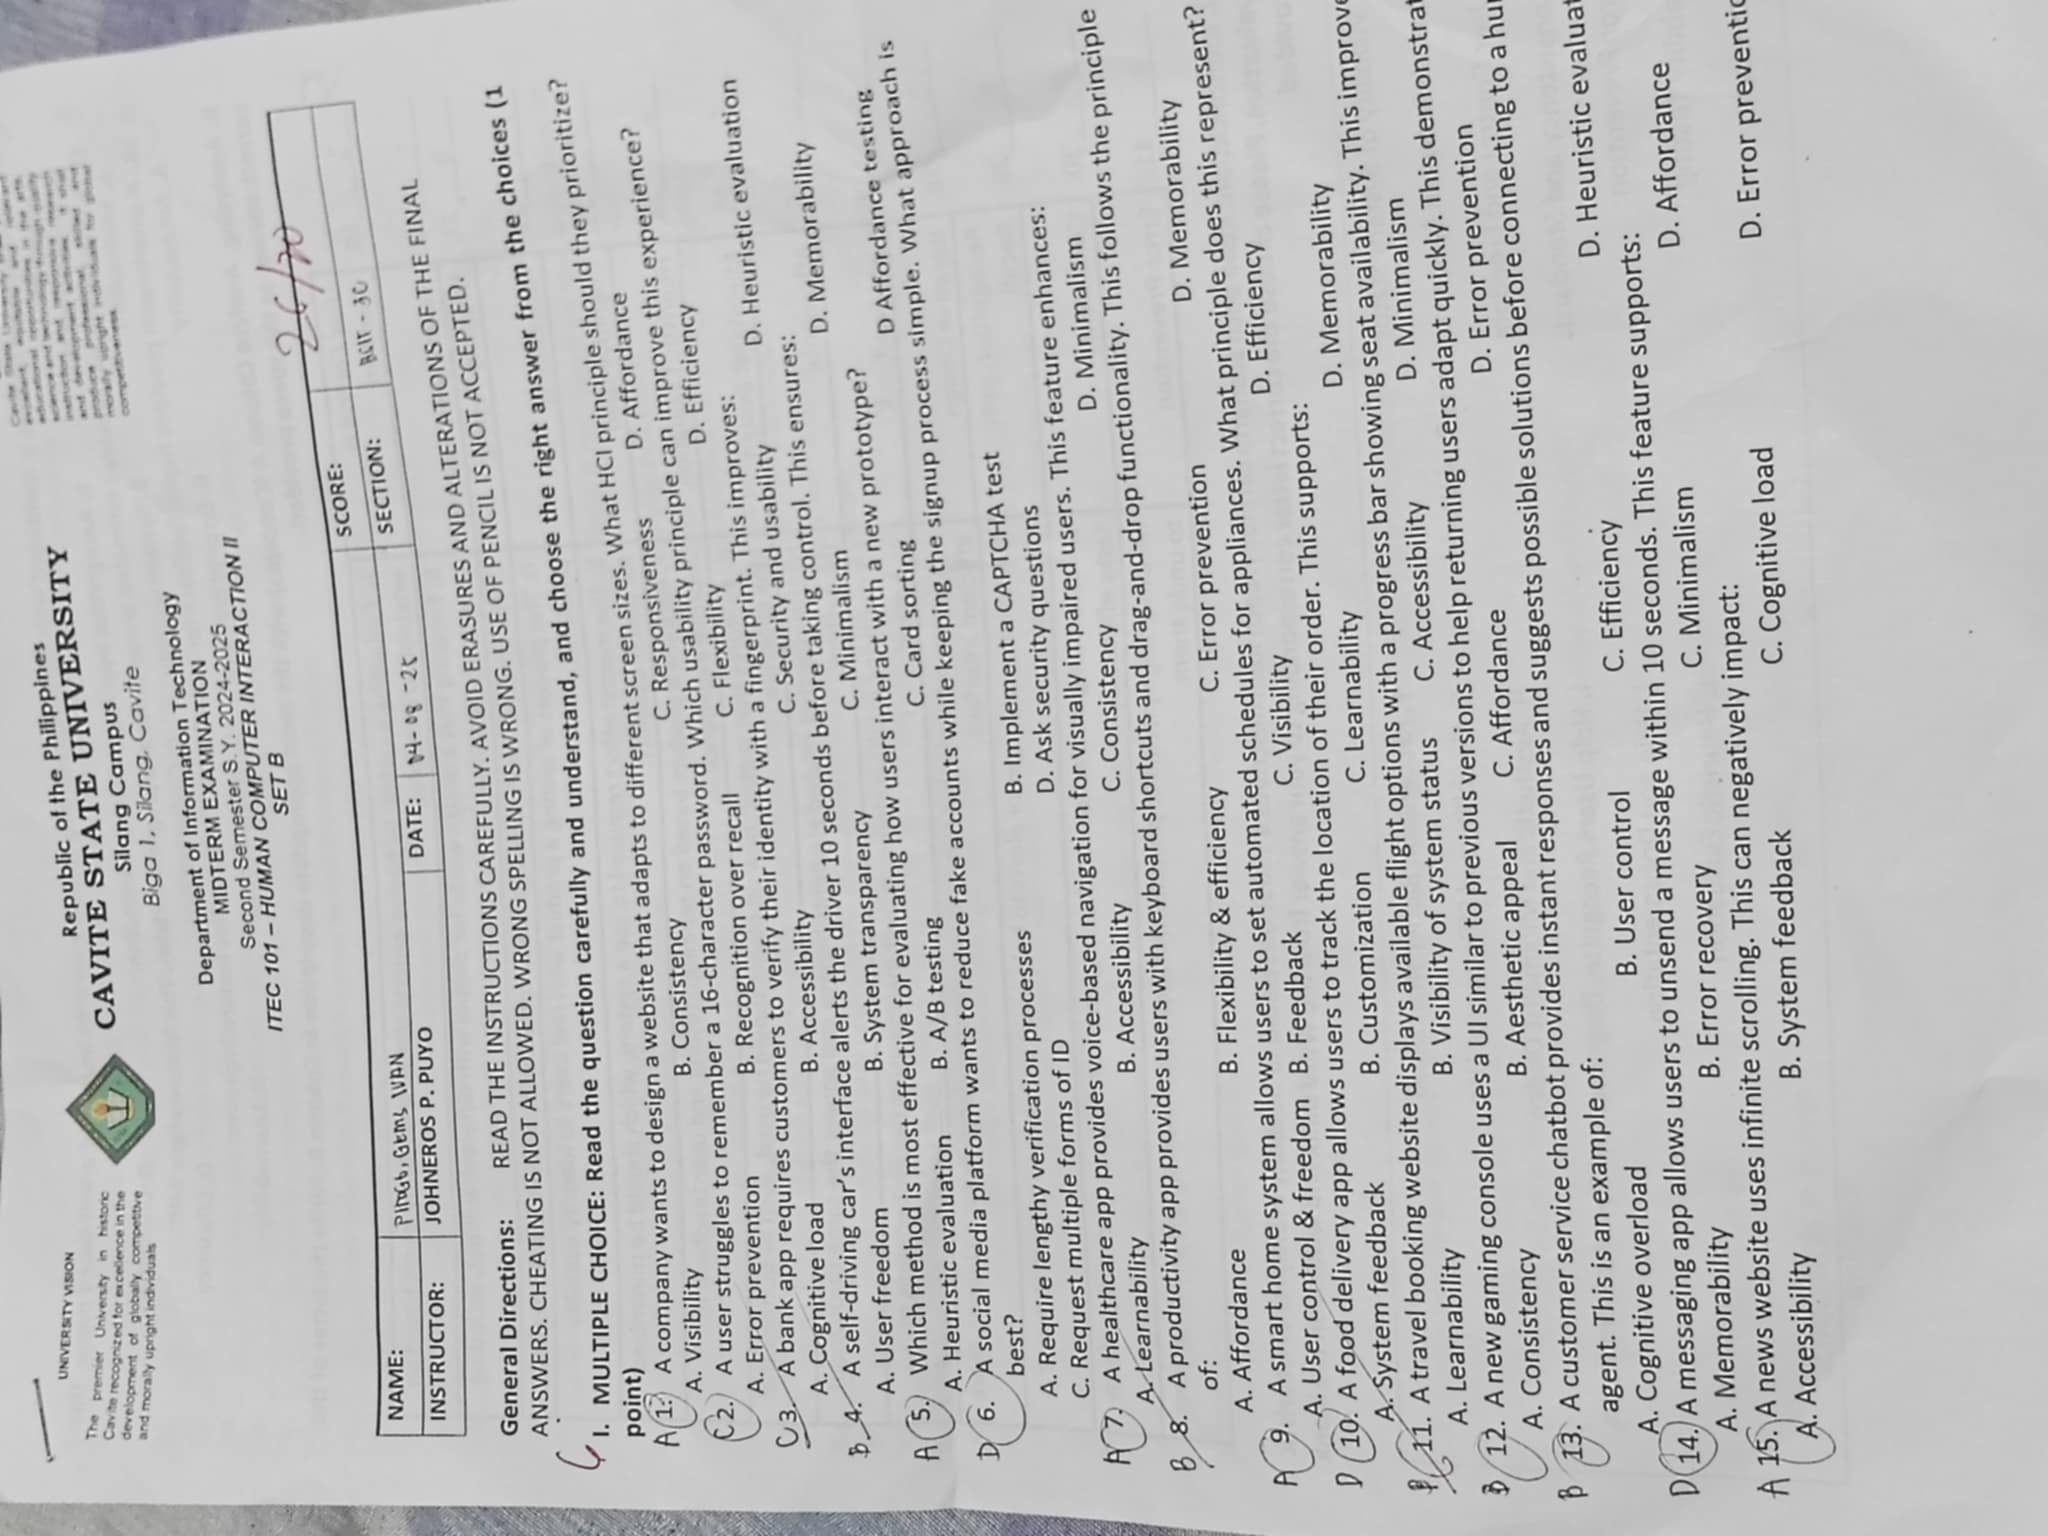 UNIVERSITY VISION
The premier University in historic
Cavite recognized for excellence in the
development of globally competitive
and morally upright individuals
Republic of the Philippines
CAVITE STATE UNIVERSITY
Silang Campus
Biga 1, Silang, Cavite
Cavite State University
excellent, equitable and relevant
educational opportunities in the arts,
science and technology through quality
instruction and responsive research
and development activities. It shall
produce professional, skilled and
morally upright individuals for global
competitiveness.
Department of Information Technology
MIDTERM EXAMINATION
Second Semester S.Y. 2024-2025
ITEC 101 – HUMAN COMPUTER INTERACTION II
SET B
26/70
NAME: , GEMS IVAN SCORE:
INSTRUCTOR: JOHNEROS P. PUYO DATE: 04-08-25 SECTION: BSIT - 3C
General Directions: READ THE INSTRUCTIONS CAREFULLY. AVOID ERASURES AND ALTERATIONS OF THE FINAL
ANSWERS. CHEATING IS NOT ALLOWED. WRONG SPELLING IS WRONG. USE OF PENCIL IS NOT ACCEPTED.
I. MULTIPLE CHOICE: Read the question carefully and understand, and choose the right answer from the choices (1
point)
A 1. A company wants to design a website that adapts to different screen sizes. What HCI principle should they prioritize?
A. Visibility B. Consistency C. Responsiveness D. Affordance
C 2. A user struggles to remember a 16-character password. Which usability principle can improve this experience?
A. Error prevention B. Recognition over recall C. Flexibility D. Efficiency
C 3. A bank app requires customers to verify their identity with a fingerprint. This improves:
A. Cognitive load B. Accessibility C. Security and usability D. Heuristic evaluation
B 4. A self-driving car's interface alerts the driver 10 seconds before taking control. This ensures:
A. User freedom B. System transparency C. Minimalism D. Memorability
A 5. Which method is most effective for evaluating how users interact with a new prototype?
A. Heuristic evaluation B. A/B testing C. Card sorting D Affordance testing
D 6. A social media platform wants to reduce fake accounts while keeping the signup process simple. What approach is
best?
A. Require lengthy verification processes B. Implement a CAPTCHA test
C. Request multiple forms of ID D. Ask security questions
A 7. A healthcare app provides voice-based navigation for visually impaired users. This feature enhances:
A. Learnability B. Accessibility C. Consistency D. Minimalism
B 8. A productivity app provides users with keyboard shortcuts and drag-and-drop functionality. This follows the principle
of:
A. Affordance B. Flexibility & efficiency C. Error prevention D. Memorability
A 9. A smart home system allows users to set automated schedules for appliances. What principle does this represent?
A. User control & freedom B. Feedback C. Visibility D. Efficiency
D 10. A food delivery app allows users to track the location of their order. This supports:
A. System feedback B. Customization C. Learnability D. Memorability
11. A travel booking website displays available flight options with a progress bar showing seat availability. This improve
A. Learnability B. Visibility of system status C. Accessibility D. Minimalism
B 12. A new gaming console uses a UI similar to previous versions to help returning users adapt quickly. This demonstrat
A. Consistency B. Aesthetic appeal C. Affordance D. Error prevention
B 13. A customer service chatbot provides instant responses and suggests possible solutions before connecting to a hu
agent. This is an example of:
A. Cognitive overload B. User control C. Efficiency D. Heuristic evaluat
D 14. A messaging app allows users to unsend a message within 10 seconds. This feature supports:
A. Memorability B. Error recovery C. Minimalism D. Affordance
A 15. A news website uses infinite scrolling. This can negatively impact:
A. Accessibility B. System feedback C. Cognitive load D. Error preventio